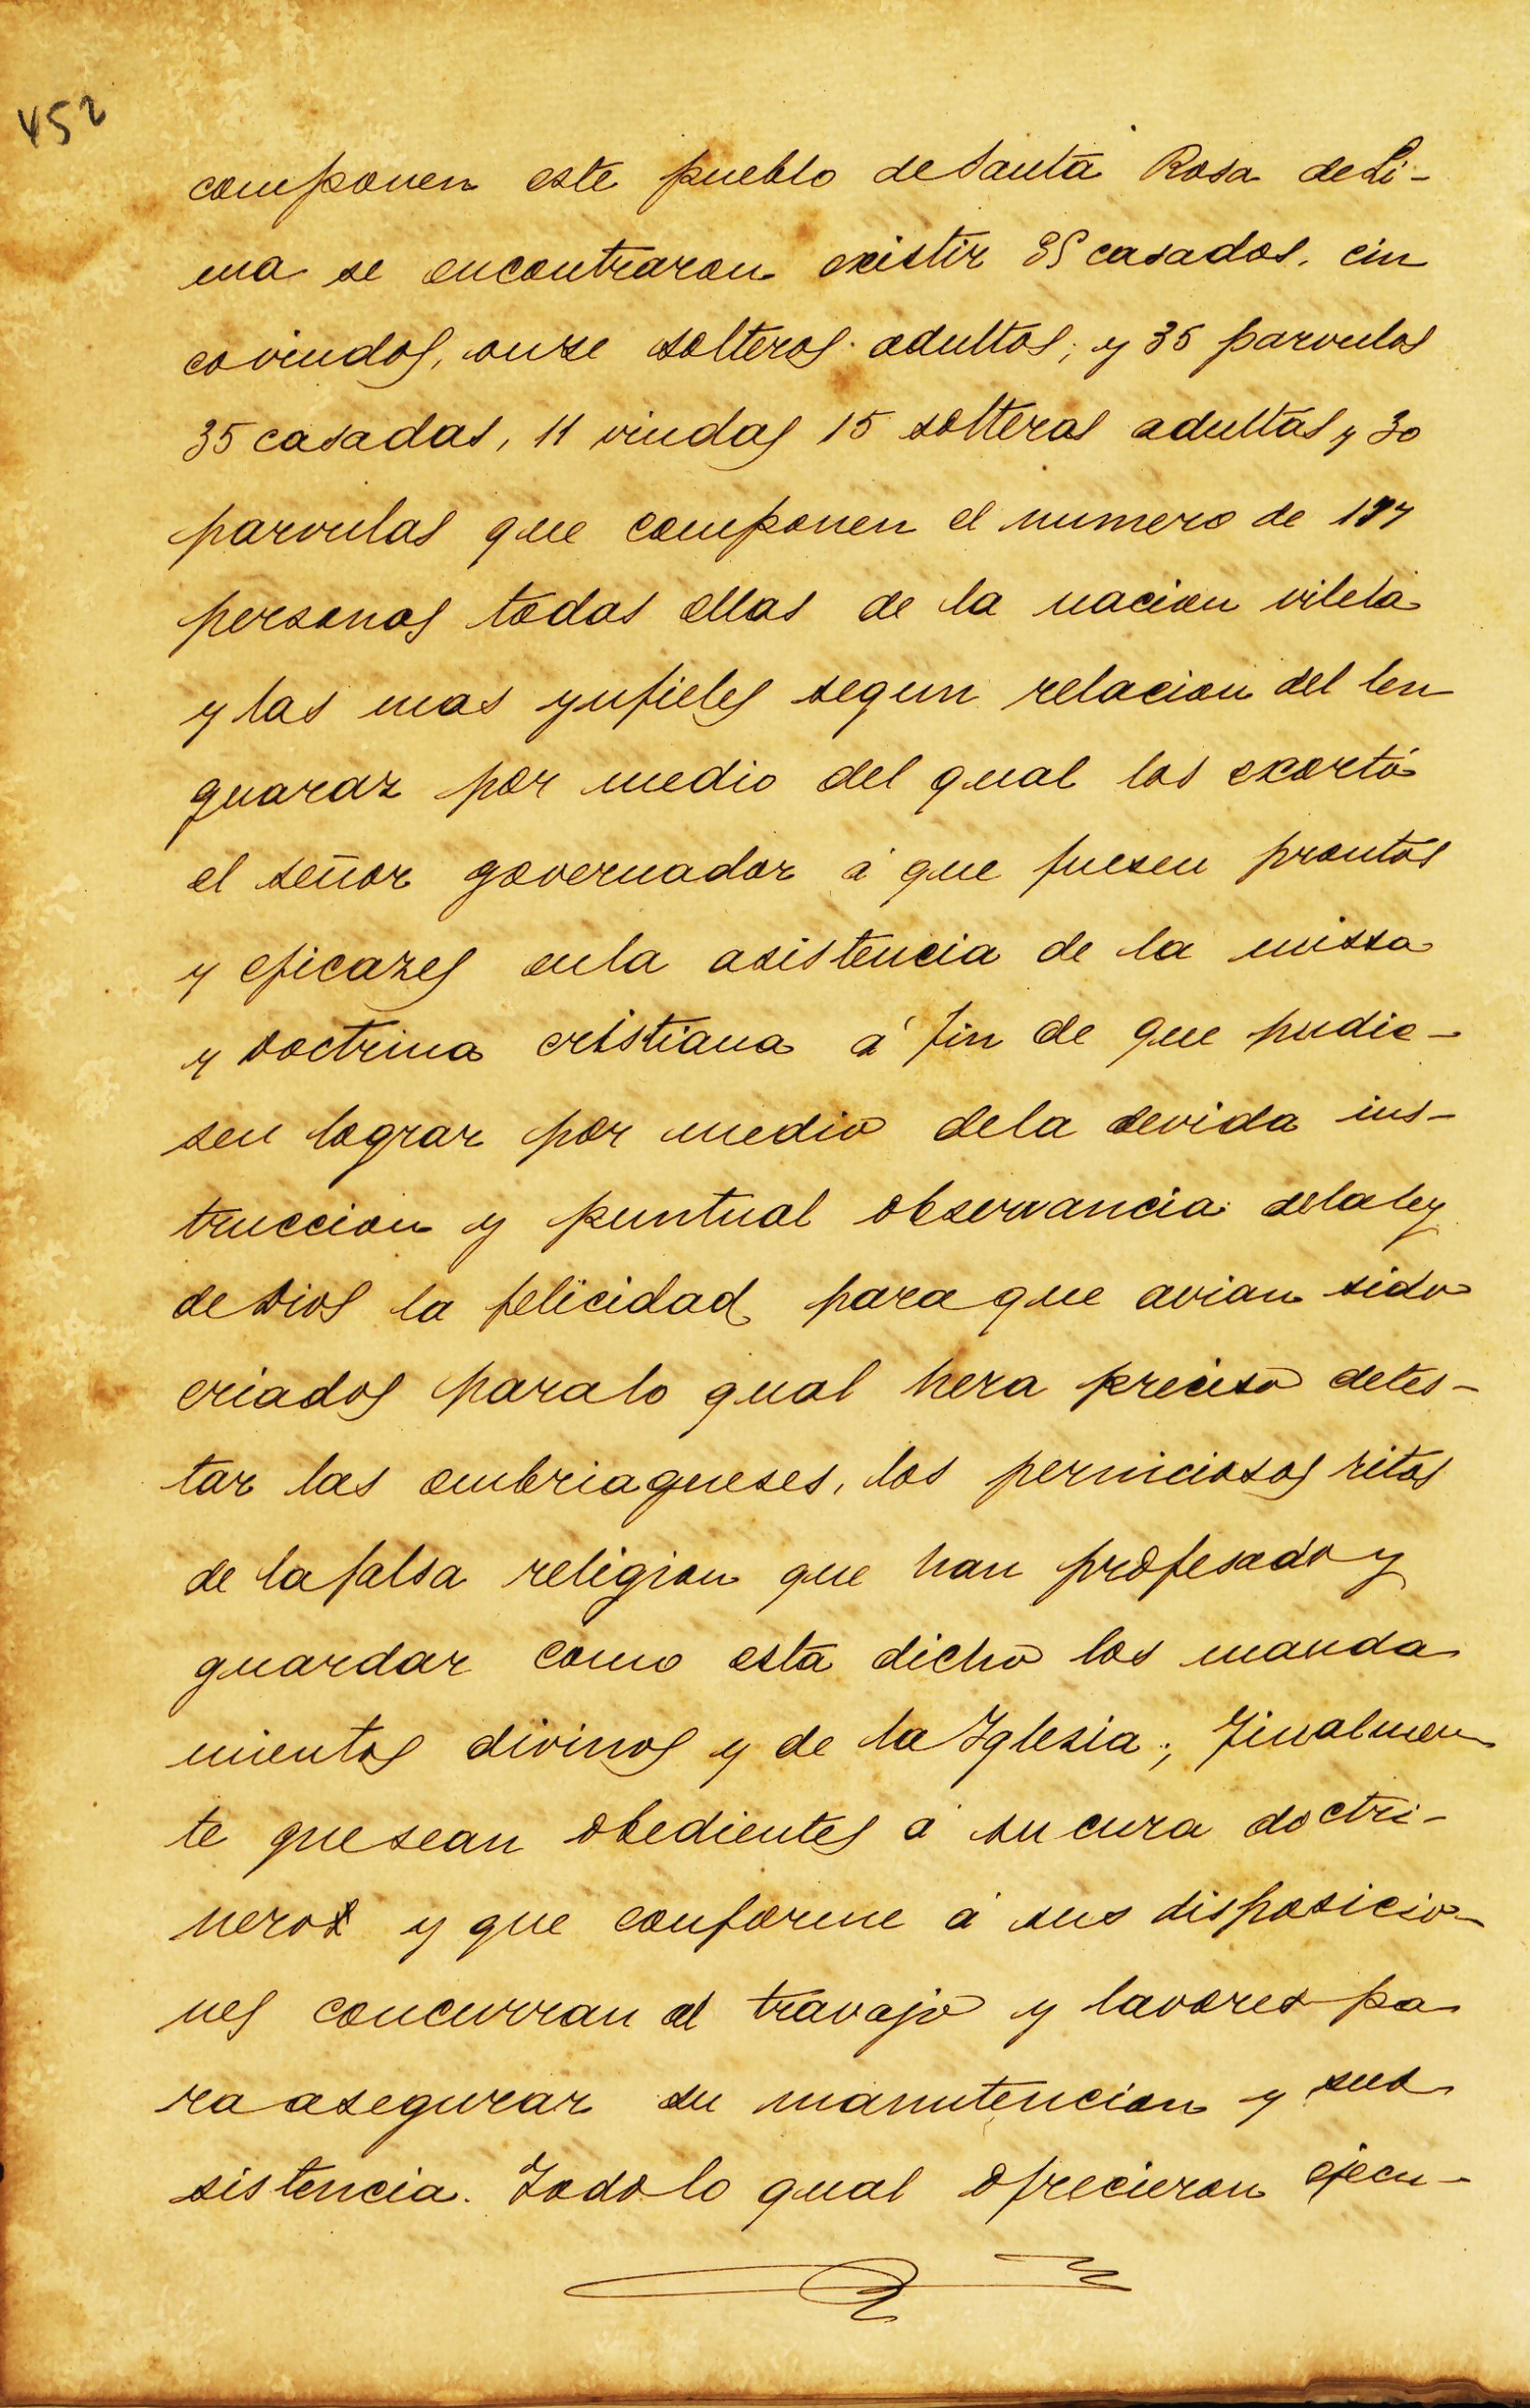 452
componen este pueblo de Santa Rosa de Li-
ma se encontraron existir 35 casados, cin
co viudos, onze solteros adultos; y 35 parvulos
35 casadas, 11 viudas 15 solteras adultas y 30
parvulas que componen el numero de 177
personas todas ellas de la nacion vilela
y las mas ynfieles segun relacion del len
guaraz por medio del qual los exortó
el señor governador á que fuesen prontos
y eficazes enla asistencia de la missa
y doctrina cristiana á fin de que pudie-
sen lograr por medio dela devida ins-
truccion y puntual observancia delaley
de Dios la felicidad para que avian sido
criados paralo qual hera preciso detes-
tar las embriagueses, los perniciosos ritos
de la falsa religion que han profesado y
guardar como está dicho los manda
mientos divinos y de la Yglesia; finalmen
te que sean obedientes á su cura doctri-
nero y que conforme á sus disposicio-
nes concurran al travajo y lavores pa
ra asegurar su manutencion y sub
sistencia. Todo lo qual ofrecieron ejecu-